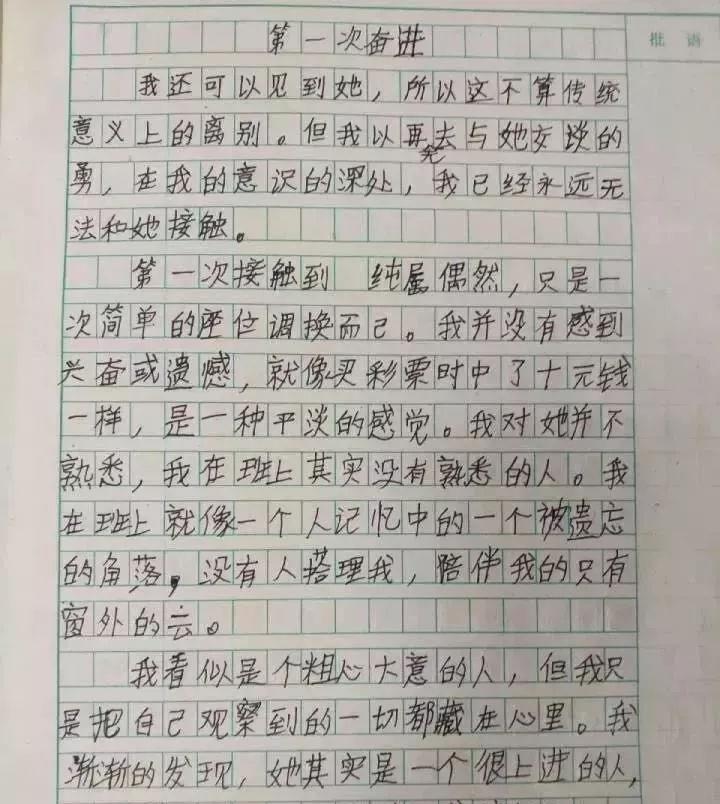 批语
第一次奋进
我还可以见到她，所以这不算传统
意义上的离别。但我以再去与她交谈的
勇，在我的意识的深处，我已经永远无
法和她接触。
第一次接触到 纯属偶然，只是一
次简单的座位调换而已。我并没有感到
兴奋或遗憾，就像买彩票时中了十元钱
一样，是一种平淡的感觉。我对她并不
熟悉，我在班上其实没有熟悉的人。我
在班上就像一个人记忆中的一个被遗忘
的角落，没有人搭理我，陪伴我的只有
窗外的云。
我看似是个粗心大意的人，但我只
是把自己观察到的一切都藏在心里。我
渐渐的发现，她其实是一个很上进的人，